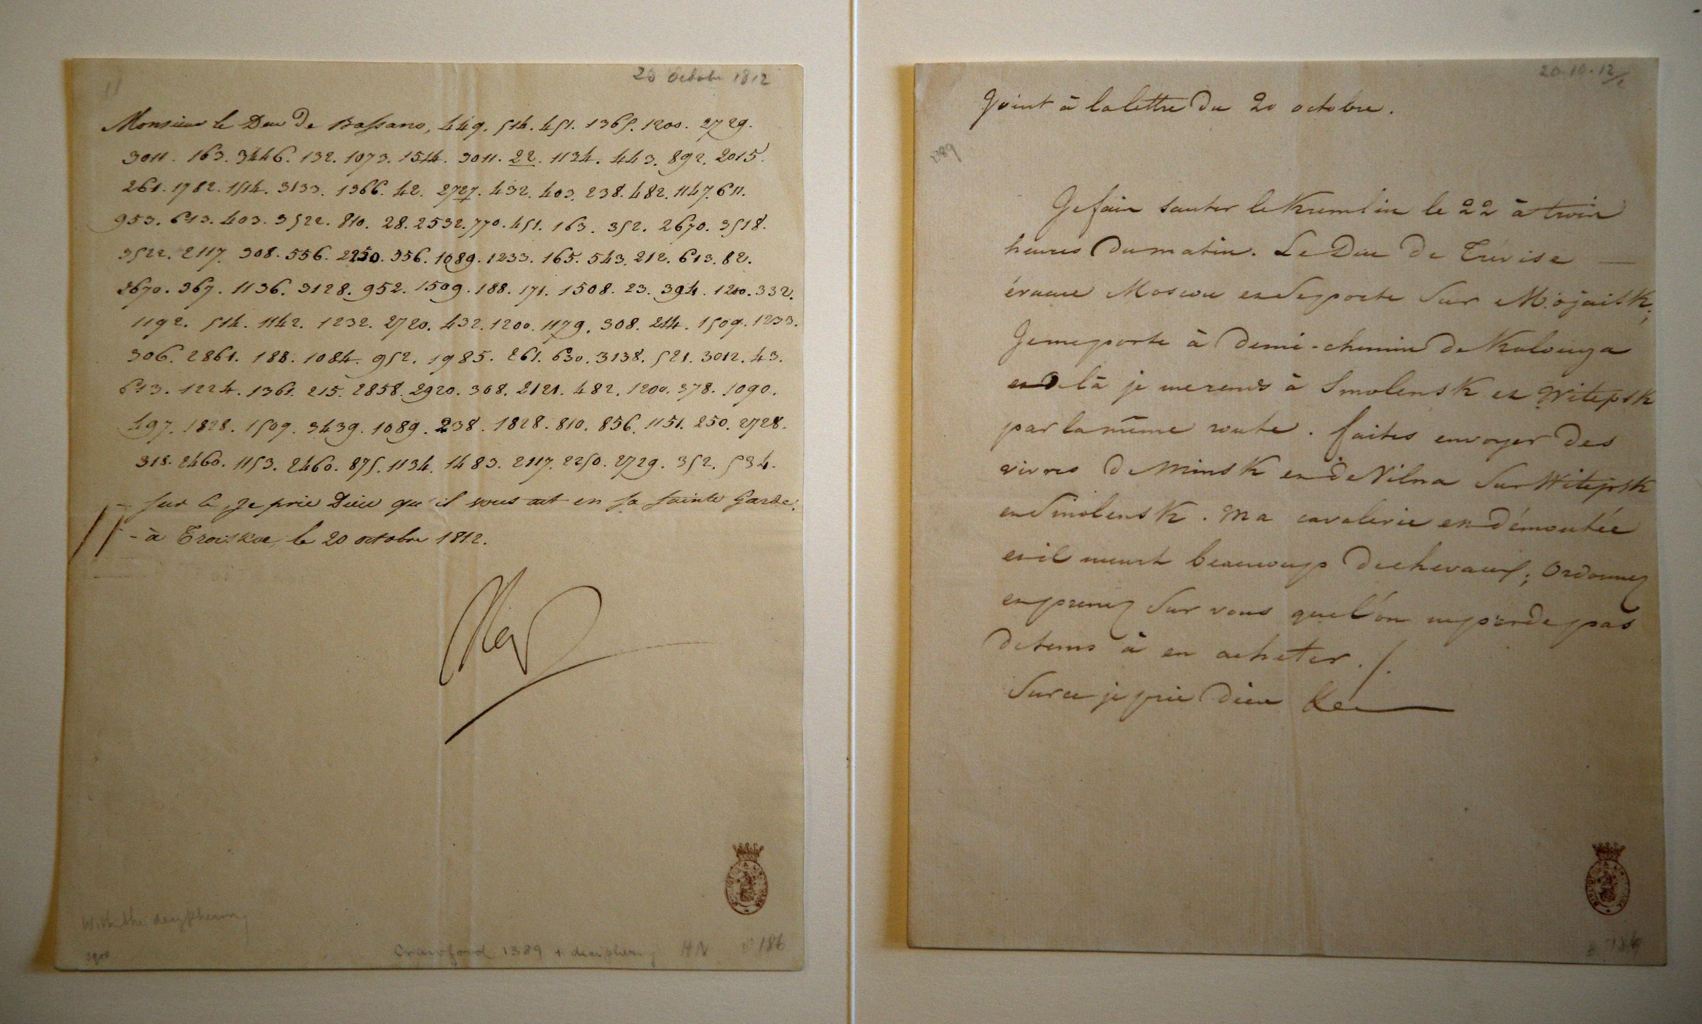 20 Octobre 1812
Monsieur le Duc de Bassano, 449. 514. 451. 1365. 1200. 2729.
3011. 163. 3446. 132. 1073. 1514. 3011. 22. 1134. 443. 892. 2015.
261. 1782. 1514. 3133. 1366. 42. 2727. 432. 403. 238. 482. 1147. 611.
953. 613. 403. 3522. 810. 28. 2532. 770. 451. 163. 352. 2670. 3518.
3522. 2117. 308. 556. 2250. 356. 1089. 1233. 165. 543. 212. 613. 82.
2670. 367. 1136. 3128. 952. 1509. 188. 171. 1508. 23. 394. 1200. 332.
1192. 514. 1142. 1232. 2720. 432. 1200. 1179. 308. 214. 1509. 1233.
306. 2861. 188. 1084. 952. 1985. 261. 630. 3138. 521. 3012. 43.
613. 1224. 1361. 215. 2858. 2920. 308. 2121. 482. 1200. 378. 1090.
497. 1828. 1509. 3439. 1089. 238. 1828. 810. 856. 1151. 250. 2728.
318. 2460. 1153. 2460. 875. 1134. 1483. 2117. 2250. 2729. 352. 534.
Sur ce, Je prie Dieu qu'il vous ait en sa sainte Garde.
- à Troiskoe, le 20 octobre 1812.
Nap
With the decyphering
Crawford 1389 + deciphering HN 186
20.10.12/1
Joint à la lettre du 20 octobre.
1389
Je fais sauter le Kremlin le 22 à trois
heures du matin. Le Duc de Trévise
évacue Moscou et se porte sur Mojaisk;
Je me porte à demi-chemin de Kalouga
et de là je me rends à Smolensk et Witepsk
par la même route. faites envoyer des
vivres de Minsk et de Wilna sur Witepsk
et Smolensk. Ma cavalerie est démontée
et il meurt beaucoup de chevaux; Ordonnez
et prenez sur vous que l'on ne perde pas
de tems à en acheter./.
Sur ce je prie Dieu &c
186